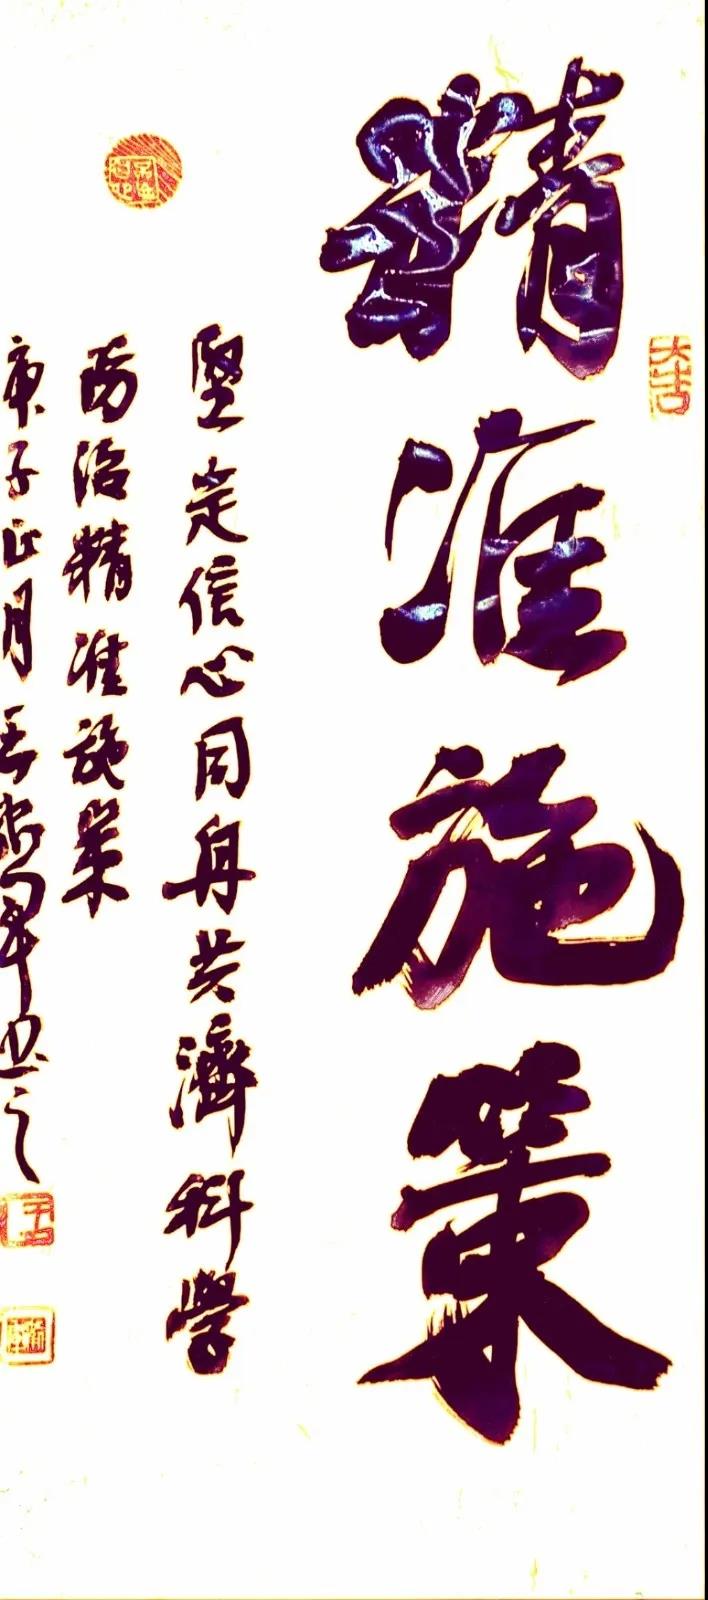 精准施策
堅定信心同舟共濟科學
防治精准施策
庚子正月书之